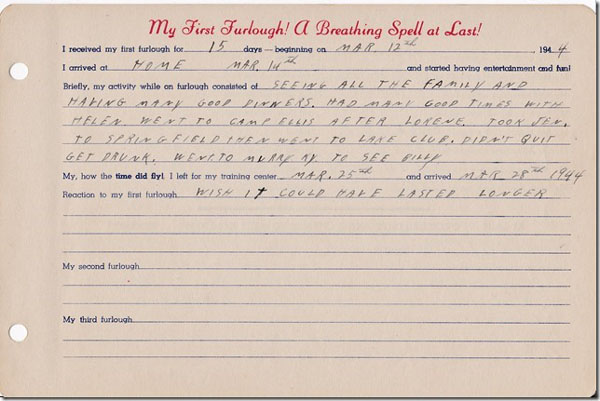 My First Furlough! A Breathing Spell at Last!
I received my first furlough for 15 days—beginning on MAR. 12th, 1944
I arrived at HOME MAR. 14th and started having entertainment and fun!
Briefly, my activity while on furlough consisted of SEEING ALL THE FAMILY AND
HAVING MANY GOOD DINNERS. HAD MANY GOOD TIMES WITH
HELEN. WENT TO CAMP ELLIS AFTER LORENE. TOOK JEN.
TO SPRINGFIELD THEN WENT TO LAKE CLUB. DIDN'T QUIT
GET DRUNK. WENT TO MURRY KY. TO SEE BILLY
My, how the time did fly! I left for my training center MAR. 25th and arrived MAR 28th 1944
Reaction to my first furlough WISH IT COULD HAVE LASTED LONGER
My second furlough
My third furlough